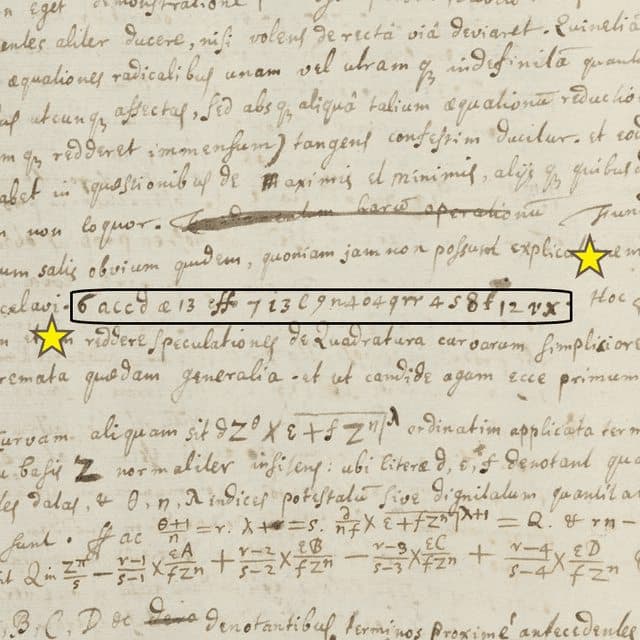 eget demonstratione
aliter ducere, nisi volens de rectâ viâ deviaret. Quinetia
æquationes radicalibus unam vel utramq; indefinitā quanti
utcunq; affectas, sed absq; aliquâ talium æquationū reductio
q; redderet immensum) tangens confestim ducitur. et eod
in quæstionibus de Maximis et minimis, alijsq; quibus
non loquor.
satis obvium quidem, quoniam jam non possum explic
celavi. 6 a c c d æ 13 e f f 7 i 3 l 9 n 4 o 4 q r r 4 s 8 t 12 v x. Hoc
reddere speculationes de Quadratura curvarum simpliciore
remata quædam generalia. et ut candide agam ecce primum
aliquam sit dZ^θ × e + f Z^η|^λ ordinatim applicata term
basis Z normaliter insistens: ubi literæ d, e, f denotant qua
datas, & θ, η, λ indices potestatū sive dignitatum quantitat
sunt. Fac (θ+1)/η = r. λ + r = s. d/ηf × e + fZ^η|^λ+1 = Q. & rη −
it Q in Z^πη/s − (r−1)/(s−1) × eA/fZ^η + (r−2)/(s−2) × eB/fZ^η − (r−3)/(s−3) × eC/fZ^η + (r−4)/(s−4) × eD/fZ^η
B, C, D &c denotantibus terminos proximè antecedentes